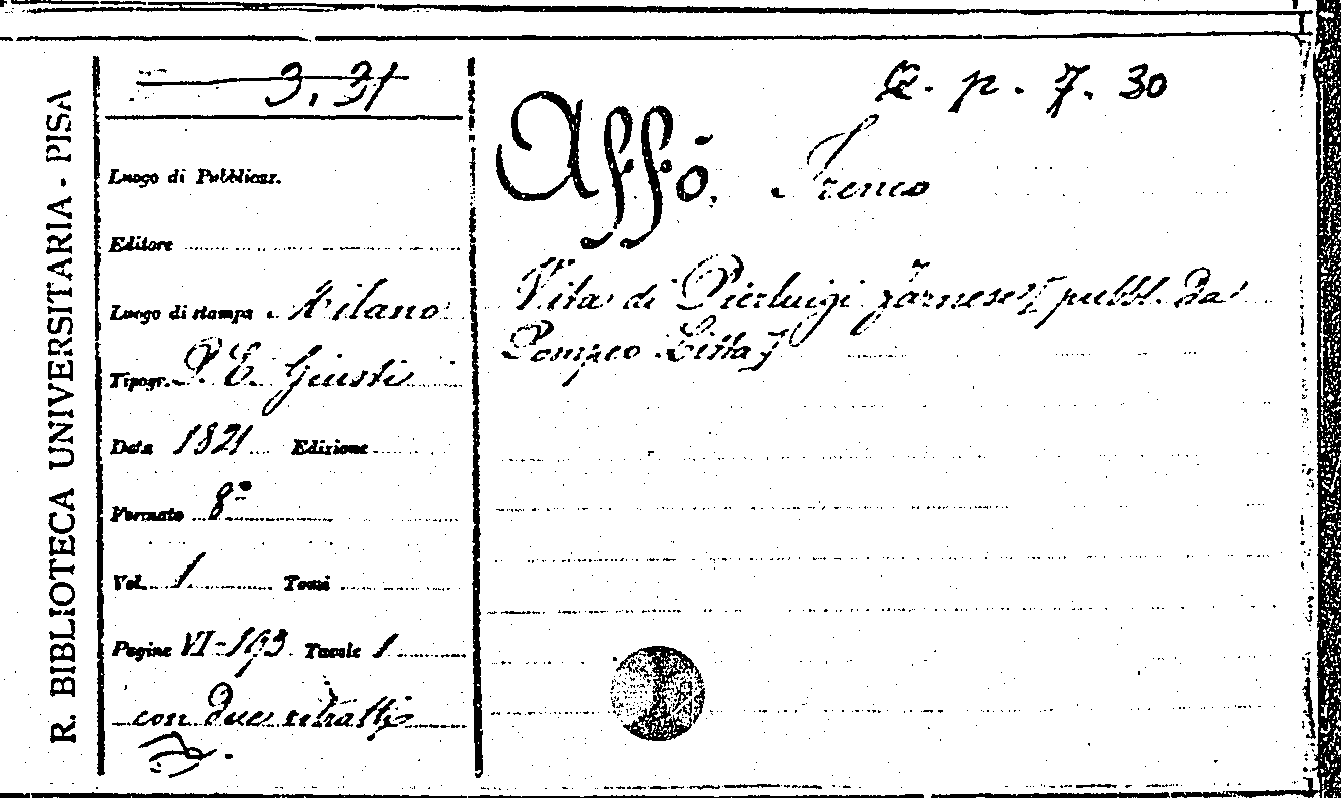 R. BIBLIOTECA UNIVERSITARIA - PISA
3. 31
Luogo di Pubblicaz.
Editore
Luogo di stampa Milano
Tipogr. P. E. Giusti
Data 1821 Edizione
Formato 8º
Vol. 1 Tomi
Pagine VI-193 Tavole 1
con due ritratti
p. 7. 30
Affò, Ireneo
Vita di Pierluigi Farnese [pubbl. da
Pompeo Litta]